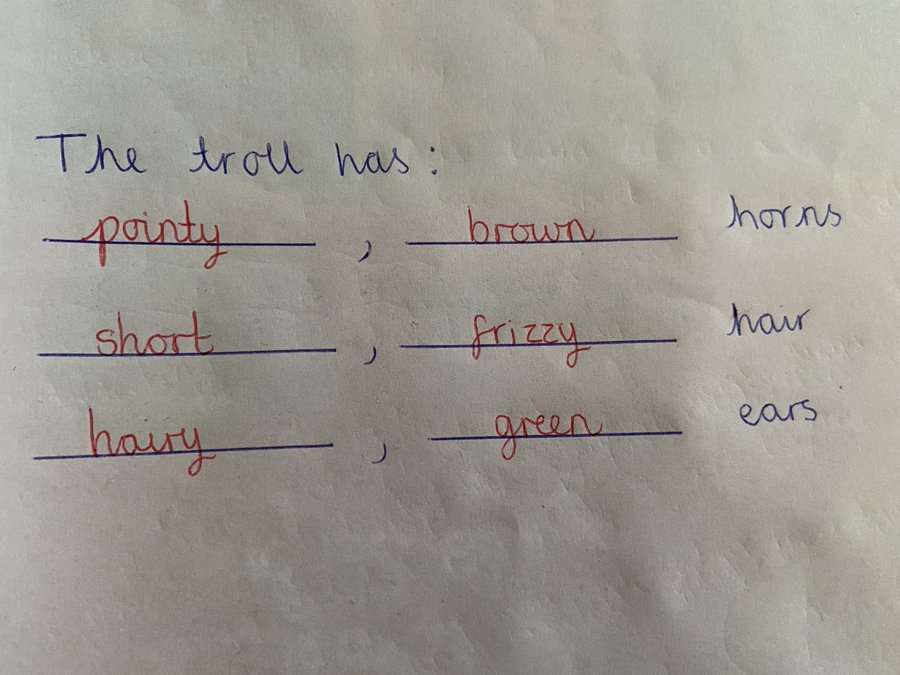 The troll has:
pointy, brown horns
short, frizzy hair
hairy, green ears